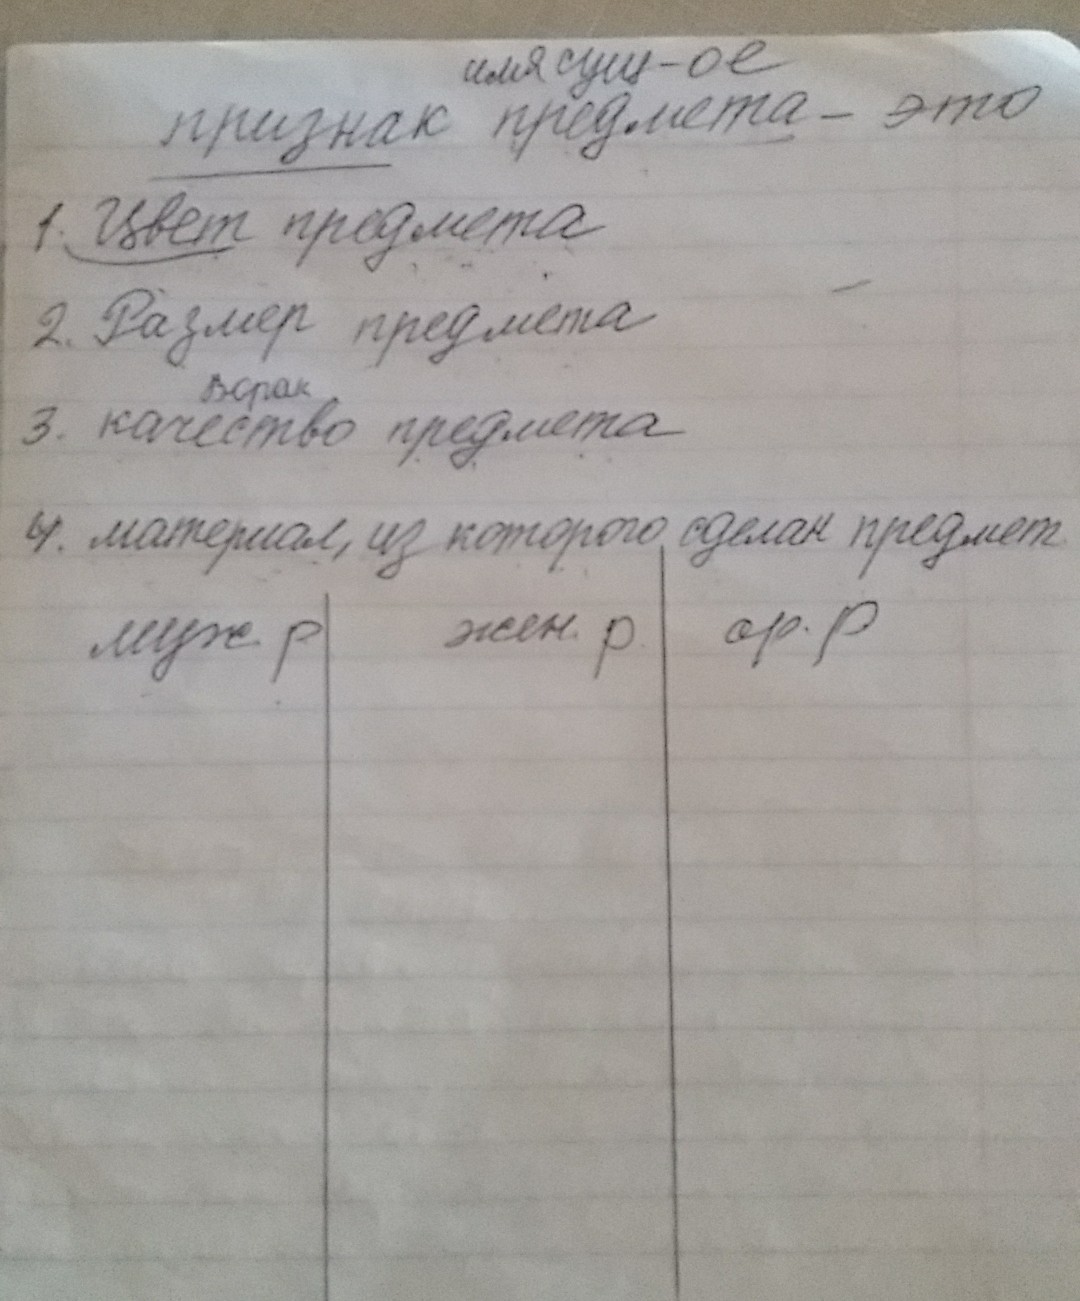 имя сущ-ое
признак предмета - это
1. Цвет предмета
2. Размер предмета
3. качество предмета
4. материал, из которого сделан предмет
муж. р жен. р. ср. р